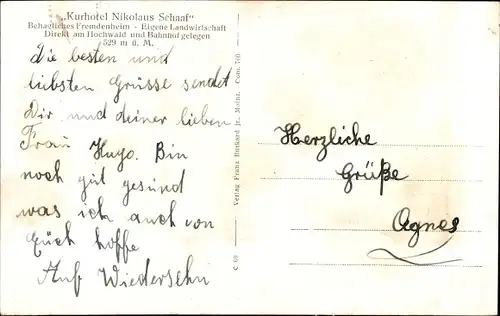 „Kurhotel Nikolaus Schaaf"
Behagliches Fremdenheim - Eigene Landwirtschaft
Direkt am Hochwald und Bahnhof gelegen
529 m ü. M.
Die besten und
liebsten Grüsse sendet
Dir und deiner lieben
Frau Hugo. Bin
noch gut gesund
was ich auch von
Euch hoffe
Auf Wiedersehn
Verlag Franz Burkard jr. Mainz. Com. 760
C 69
Herzliche
Grüße
Agnes